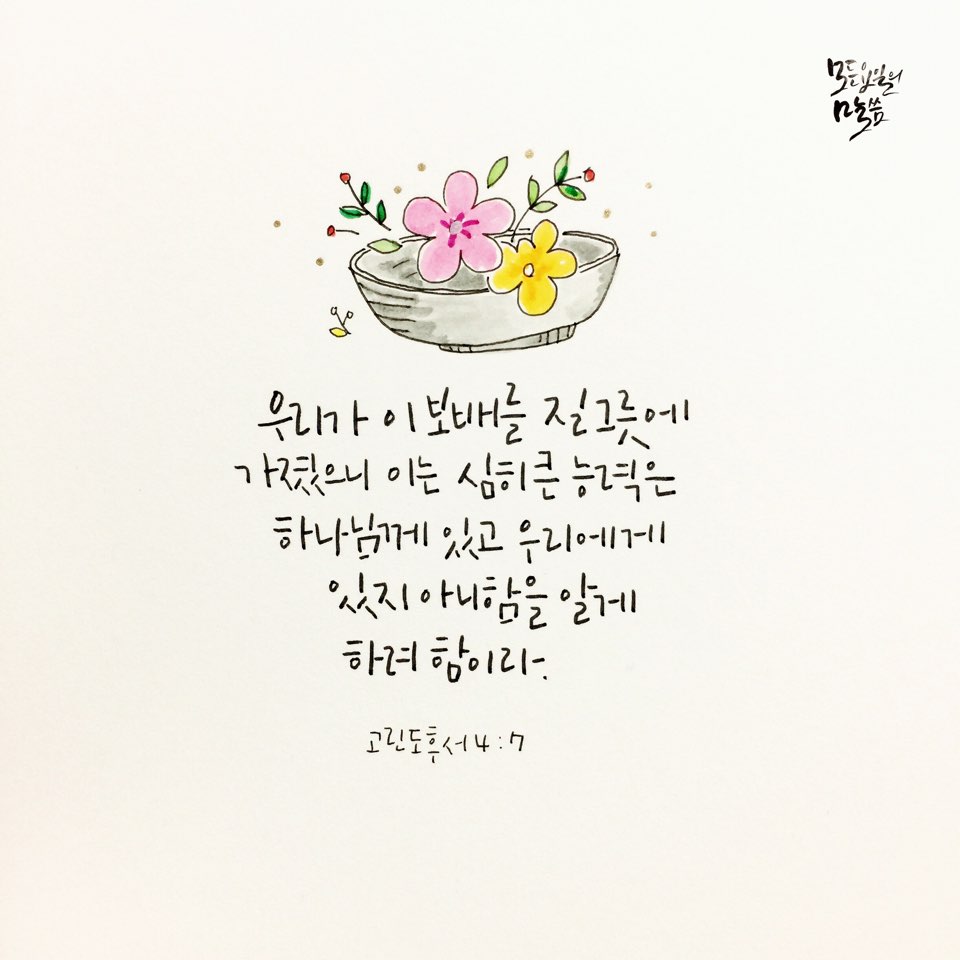 모든요일의
말씀
우리가 이 보배를 질그릇에
가졌으니 이는 심히 큰 능력은
하나님께 있고 우리에게
있지 아니함을 알게
하려 함이라.
고린도후서 4:7